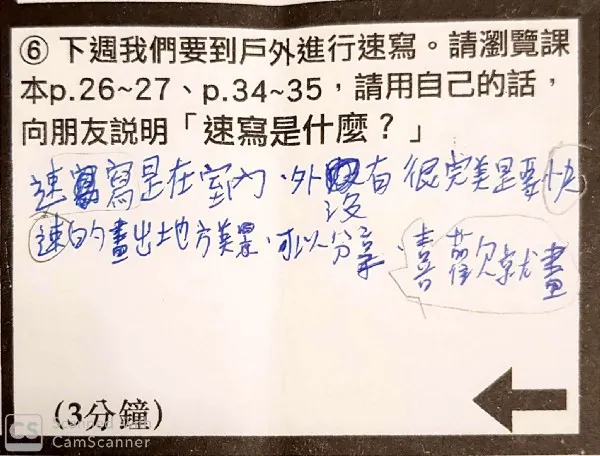 ⑥ 下週我們要到戶外進行速寫。請瀏覽課
本p.26~27、p.34~35，請用自己的話，
向朋友說明「速寫是什麼？」
速寫是在室內、外沒有很完美是要快
速的畫出地方美景、可以分享、喜歡就畫
(3分鐘)
CS Scanned with
CamScanner